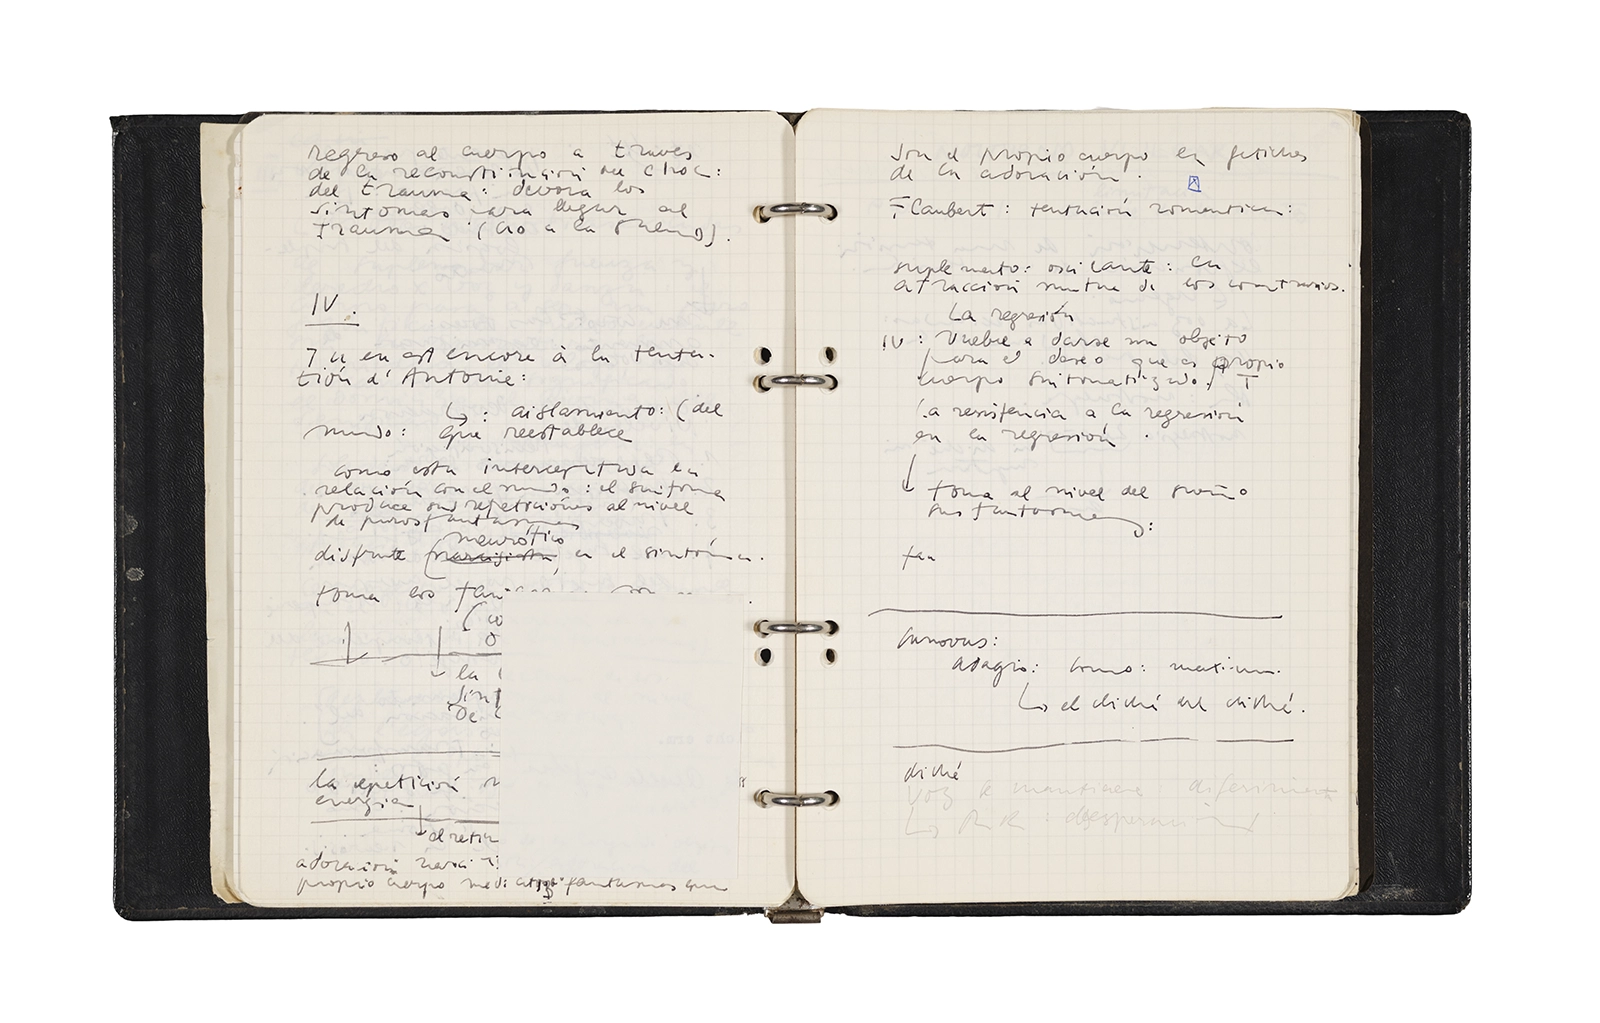 regreso al cuerpo a través
de la reconstrucción del choc:
del trauma: devora los
síntomas para llegar al
trauma
IV.
Tu en est encore à la tenta-
tión d'Antonie:
↳: aislamiento: (del
mundo: que reestablece
como esta interceptada la
relación con el mundo: el síntoma
produce sus repeticiones al nivel
de puros fantasmas
neurótico
disfrute (narcisista, en el síntoma.
toma los
la
sínt
De
la repetición
energía
al retir
adoración narci
propio cuerpo fantasmas que
son el propio cuerpo en fetiches
de la adoración.
Flaubert: tentación romantica:
suplemento: oscilante: la
atracción mutua de los contrarios.
La regresión
IV: Vuelve a darse un objeto
para el deseo que es propio
cuerpo sintomatizado, T
la resistencia a la regresión
en la regresión.
toma al nivel del sueño
sus fantasmas:
fan
Canovas:
adagio: como: maxim.
↳ el cliché del cliché.
cliché
Voz